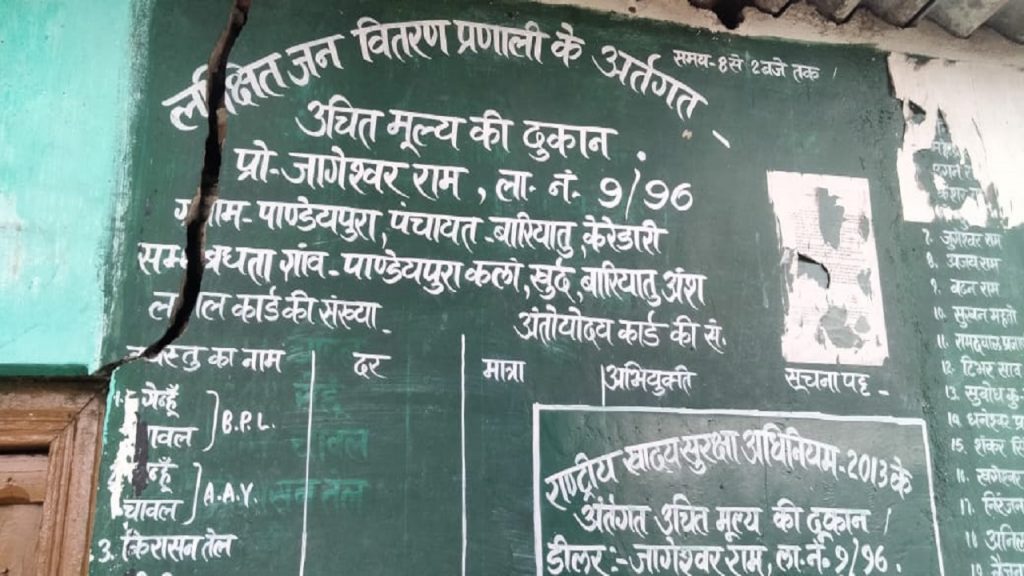 लक्षित जन वितरण प्रणाली के अर्तगत
समय-8 से 2 बजे तक
उचित मूल्य की दुकान
प्रो-जागेश्वर राम, ला॰ नं॰ 9/96
ग्राम-पाण्डेयपुरा, पंचायत-बारियातु, केरेडारी
सम्बधता गांव-पाण्डेयपुरा कलां, खुर्द, बारियातु अंश
कार्ड की संख्या
अंतोयोदय कार्ड की सं.
वस्तु का नाम दर मात्रा अभियुक्ति
सूचना पट्ट -
1. गेहूँ
चावल
B.P.L.
चावल
A.A.Y.
3. किरासन तेल
राष्ट्रीय खाद्य सुरक्षा अधिनियम-2013 के
अंतंगत उचित मूल्य की दूकान
डीलर:-जागेश्वर राम, ला.नं. 9/96.
7. जुगेश्वर राम
8. अजय राम
9. बढन राम
10.
11.
12.
13. सुबोध कु
14. धनेश्वर प्र
15. शंकर
16.
17. निरंजन
18. अनिल